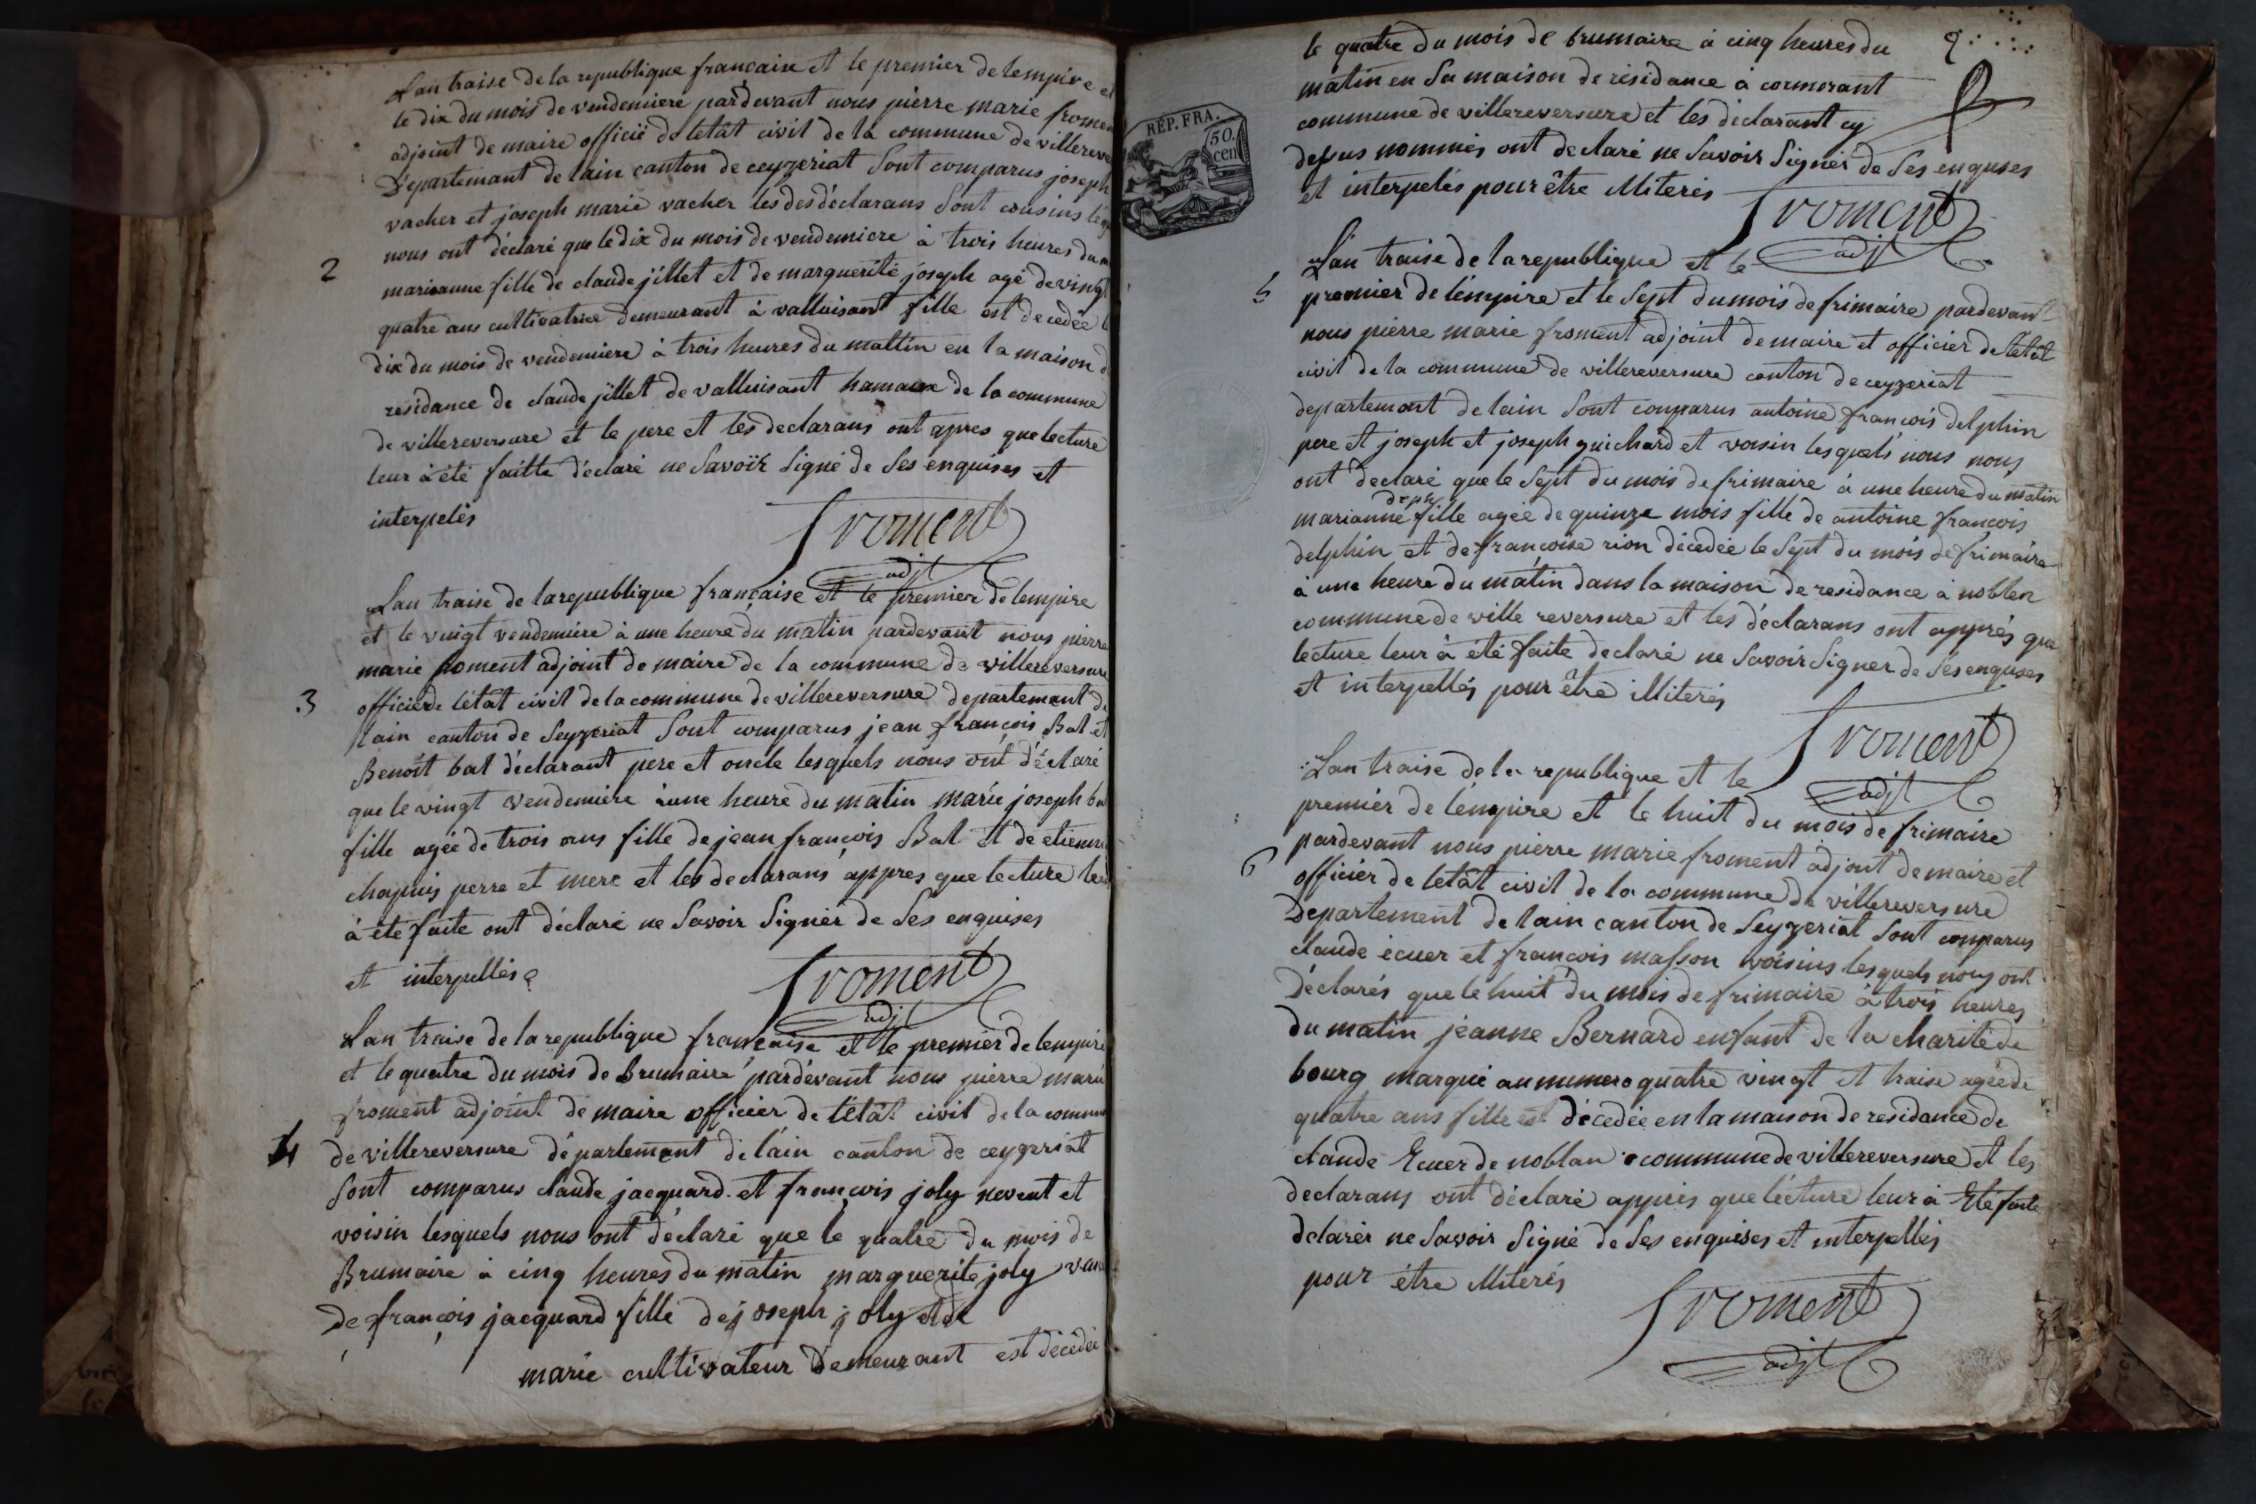 Lan traise de la republique francaise et le premier de lempire et
le dix du mois de vendemiere pardevant nous pierre marie fromen
adjoint de maire officié de letat civil de la commune de villereve
Departemant de lain canton de ceyzeriat Sont comparus joseph
vacher et joseph marie vacher les des déclarans Sont cousins
nous ont déclaré que le dix du mois de vendemiere à trois heures du
2
marieanne fille de claude jillet et de marguerite joseph agé de vingt
quatre ans cultivatrice demeurant à valluisant fille est decedée
dix du mois de vendemiere à trois heures du mattin en la maison d
residance de claude jillet de valluisant hamaux de la commune
de villereversure et le pere et les declarans ont apres que lecture
leur à été faitte déclaré ne Savoir Signé de Ses enquises et
interpelés
froment
adjt
Lan traise de la republique francaise et le premier de lempire
et le vingt vendemiere à une heure du matin pardevant nous pierre
marie froment adjoint de maire de la commune de villereversure
3
officier de létat civil de la commune de villereversure departemant de
lain canton de Seyzeriat Sont comparus jean françois Bal et
Benoit bal déclarant pere et oncle lesquels nous ont déclaré
que le vingt vendemiere à une heure du matin marie joseph ba
fille agée de trois ans fille de jean françois Bal et de etienn
chapuis perre et mere et les declarans appres que lecture leu
à été faite ont déclaré ne Savoir Signér de Ses enquises
et interpellés
froment
adj
Lan traise de la republique francaise et le premier de lempire
et le quatre du mois de Brumaire pardevant nous pierre marie
froment adjoint de maire officier de létat civil de la commun
4
de villereversure département de lain canton de ceyzeriat
Sont comparus claude jacquard et françois joly neveut et
voisin lesquels nous ont déclaré que le quatre du mois de
Brumaire à cinq heures du matin marguerite joly
de françois jacquard fille de joseph joly et de
marie cultivateur Demeurant est décédée
le quatre du mois de brumaire à cinq heures du
matin en Sa maison de residance à cormorant
commune de villereversure et les déclarant cy
dessus nommés ont déclaré ne Savoir Signér de Ses enquises
et interpelés pour être illiterés
froment
adjt
RÉP. FRA.
50
cen
Lan traise de la republique et le
5
premier de lémpire et le Sept du mois de frimaire pardevant
nous pierre marie froment adjoint de maire et officier de letat
civil de la commune de villereversure canton de ceyzeriat
departemant de lain Sont comparus antoine françois delphin
pere et joseph et joseph guichard et voisin lesquels nous nous
ont declaré que le Sept du mois de frimaire à une heure du matin
marianne fille agée de quinze mois fille de antoine francois
delphin et de francoise rion décédée le Sept du mois de frimaire
à une heure du matin dans la maison de residance à noblen
commune de ville reversure et les déclarans ont apprés que
lecture leur à été faite declaré ne Savoir Signer de Ses enquises
et interpellés pour être illiterés
froment
adjt
Lan traise de la republique et le
premier de lémpire et le huit du mois de frimaire
pardevant nous pierre marie froment adjoint de maire et
6
officier de letat civil de la commune de villereversure
Departement de lain canton de Seyzeriat Sont comparus
claude écuer et francois masson voisins lesquels nous ont
Déclarés que le huit du mois de frimaire à trois heures
du matin jeanne Bernard enfant de la charité de
bourg marqué au numero quatre vingt et traise agée de
quatre ans fille est décedée en la maison de residance de
claude Ecuer de noblan commune de villereversure et les
declarans ont déclaré apprés que lécture leur à Eté faite
délarér ne Savoir Signé de Ses enquises et interpellés
pour être illiterés
froment
adjt